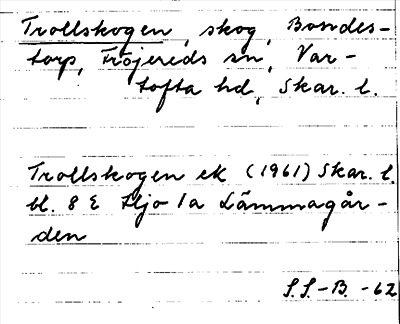 Trollskogen, skog, Bondes-
torp, Fröjereds sn, Var-
tofta hd, Skar. l.
Trollskogen ek (1961) Skar. l.
bl. 8 E Hjo 1a Lämmagår-
den
S.S.-B. -62